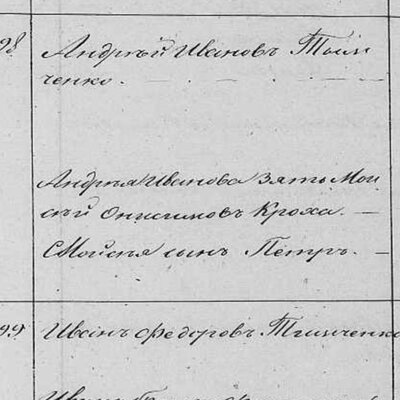 98 Андрей Ивановъ Тым
ченко.
Андрея Иванова зять Мои
сѣй Онисимовъ Кроха. —
Моисѣя сынъ Петръ. —
99 Иванъ Федоровъ Тимченко